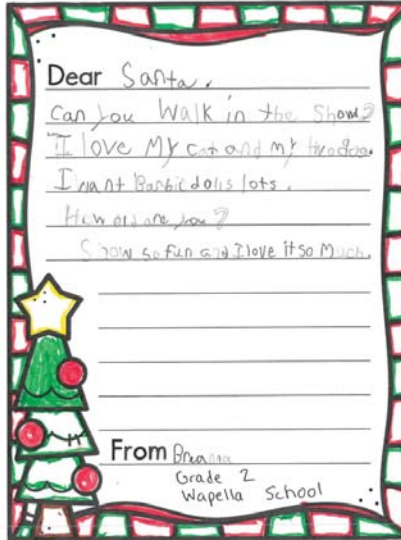 Dear Santa.
Can you Walk in the Show?
I love My cat and my two dogs.
I want Barbie dolls lots.
How old are you?
Show so fun and I love it so Much.
From Breanna
Grade 2
Wapella School